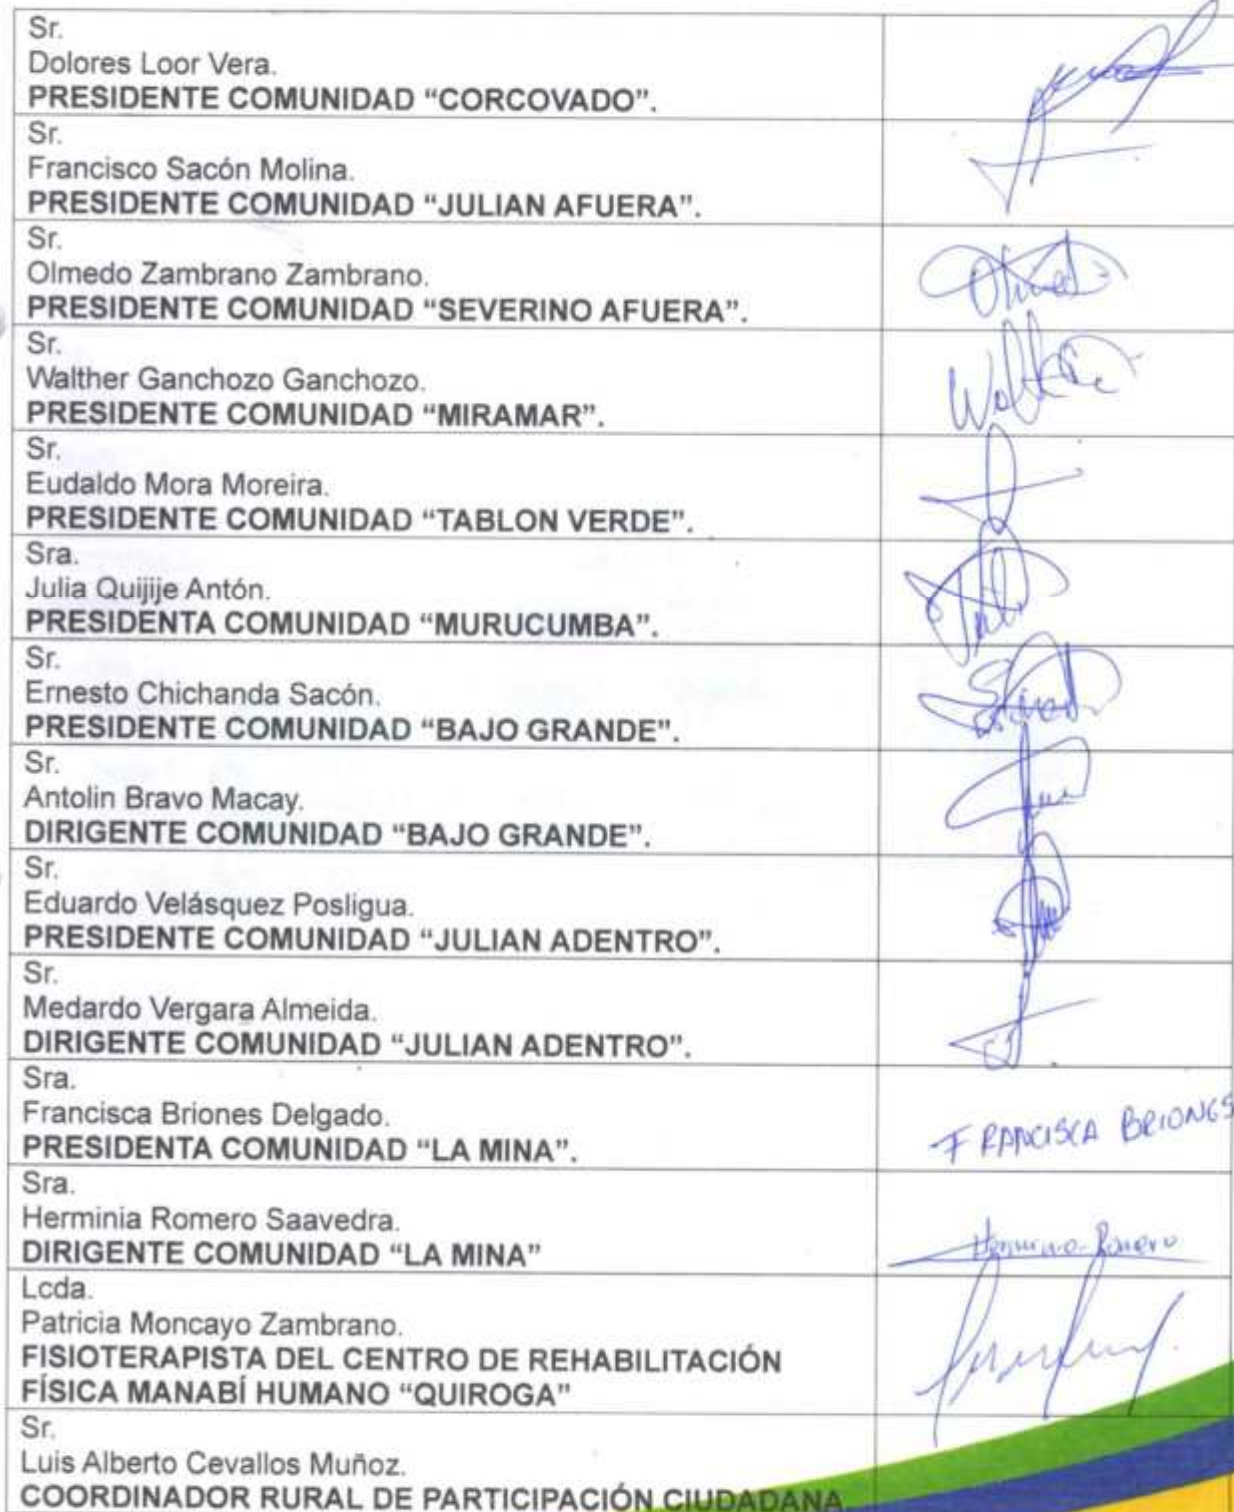 Sr.
Dolores Loor Vera.
PRESIDENTE COMUNIDAD “CORCOVADO”.
Sr.
Francisco Sacón Molina.
PRESIDENTE COMUNIDAD “JULIAN AFUERA”.
Sr.
Olmedo Zambrano Zambrano.
PRESIDENTE COMUNIDAD “SEVERINO AFUERA”.
Sr.
Walther Ganchozo Ganchozo.
PRESIDENTE COMUNIDAD “MIRAMAR”.
Sr.
Eudaldo Mora Moreira.
PRESIDENTE COMUNIDAD “TABLON VERDE”.
Sra.
Julia Quijije Antón.
PRESIDENTA COMUNIDAD “MURUCUMBA”.
Sr.
Ernesto Chichanda Sacón.
PRESIDENTE COMUNIDAD “BAJO GRANDE”.
Sr.
Antolin Bravo Macay.
DIRIGENTE COMUNIDAD “BAJO GRANDE”.
Sr.
Eduardo Velásquez Posligua.
PRESIDENTE COMUNIDAD “JULIAN ADENTRO”.
Sr.
Medardo Vergara Almeida.
DIRIGENTE COMUNIDAD “JULIAN ADENTRO”.
Sra.
Francisca Briones Delgado.
PRESIDENTA COMUNIDAD “LA MINA”.
FRANCISCA BRIONES
Sra.
Herminia Romero Saavedra.
DIRIGENTE COMUNIDAD “LA MINA”
Herminia Romero
Lcda.
Patricia Moncayo Zambrano.
FISIOTERAPISTA DEL CENTRO DE REHABILITACIÓN
FÍSICA MANABÍ HUMANO “QUIROGA”
Sr.
Luis Alberto Cevallos Muñoz.
COORDINADOR RURAL DE PARTICIPACIÓN CIUDADANA